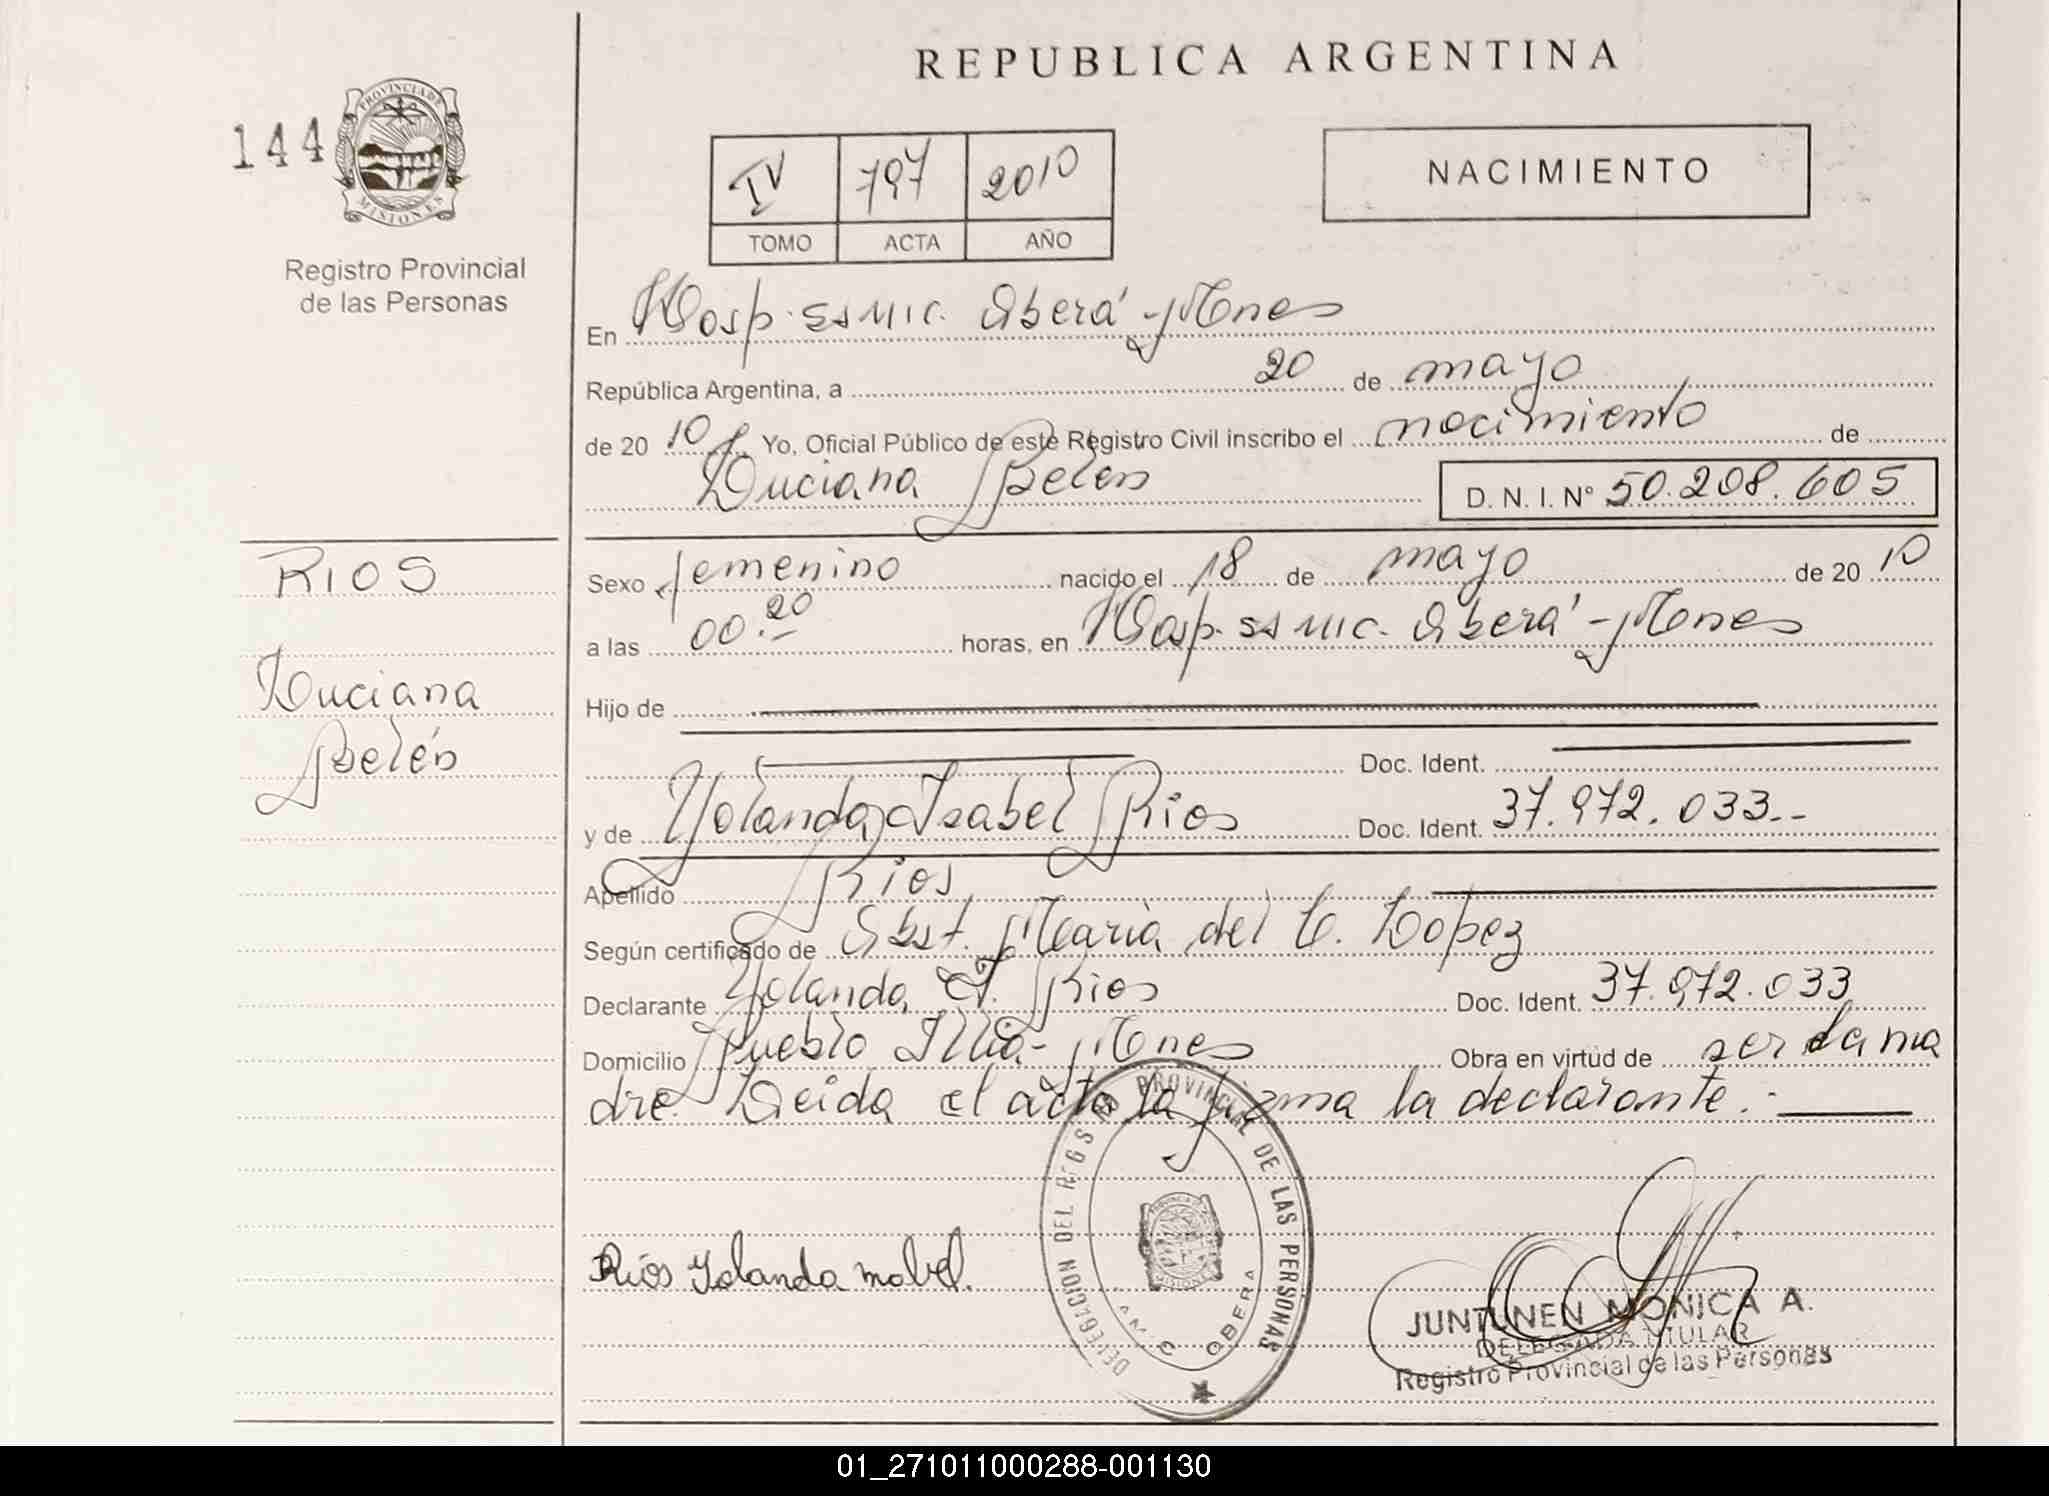 REPUBLICA ARGENTINA
144
PROVINCIA DE
MISIONES
Registro Provincial
de las Personas
IV 797 2010
TOMO ACTA AÑO
NACIMIENTO
En Hosp. SAMIC. Oberá - Mnes
República Argentina, a 20 de mayo
de 20 10 Yo, Oficial Público de este Registro Civil inscribo el nacimiento de
Luciana Belén D. N. I. Nº 50.208.605
RIOS
Luciana
Belén
Sexo femenino nacido el 18 de mayo de 20 10
a las 00.20 horas, en Hosp. SAMIC. Oberá - Mnes
Hijo de
Doc. Ident.
y de Yolanda Isabel Rios Doc. Ident. 37.972.033.-
Apellido Rios
Según certificado de Obst. Maria del C. Lopez
Declarante Yolanda I. Rios Doc. Ident. 37.972.033
Domicilio Pueblo Illia - Mnes Obra en virtud de ser la ma
dre. Leida el acta la firma la declarante.-
DELEGACION DEL REGISTRO PROVINCIAL DE LAS PERSONAS
OBERA
Rios Yolanda
JUNTUNEN MONICA A.
DELEGADA TITULAR
Registro Provincial de las Personas
01_271011000288-001130